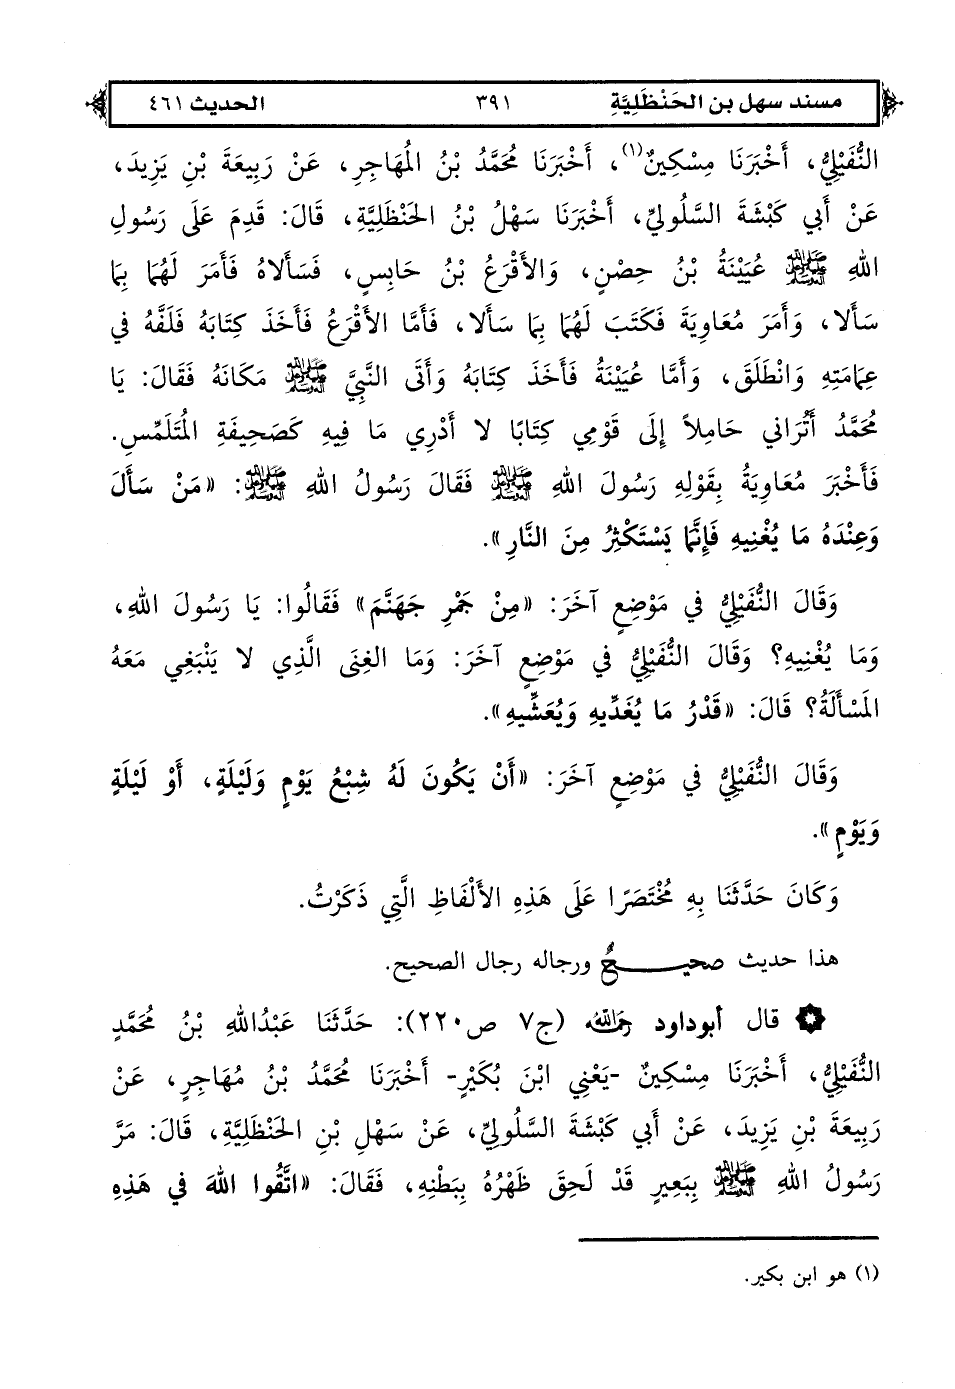 مسند سهل بن الحَنْظَلِيَّةِ ٣٩١ الحديث ٤٦١
النُّفَيْلِيُّ، أَخْبَرَنَا مِسْكِينٌ(١)، أَخْبَرَنَا مُحَمَّدُ بْنُ المُهَاجِرِ، عَنْ رَبِيعَةَ بْنِ يَزِيدَ،
عَنْ أَبِي كَبْشَةَ السَّلُولِيِّ، أَخْبَرَنَا سَهْلُ بْنُ الحَنْظَلِيَّةِ، قَالَ: قَدِمَ عَلَى رَسُولِ
اللهِ ﷺ عُيَيْنَةُ بْنُ حِصْنٍ، وَالأَقْرَعُ بْنُ حَابِسٍ، فَسَأَلاهُ فَأَمَرَ لَهُمَا بِمَا
سَأَلا، وَأَمَرَ مُعَاوِيَةَ فَكَتَبَ لَهُمَا بِمَا سَأَلا، فَأَمَّا الأَقْرَعُ فَأَخَذَ كِتَابَهُ فَلَفَّهُ فِي
عِمَامَتِهِ وَانْطَلَقَ، وَأَمَّا عُيَيْنَةُ فَأَخَذَ كِتَابَهُ وَأَتَى النَّبِيَّ ﷺ مَكَانَهُ فَقَالَ: يَا
مُحَمَّدُ أَتُرَانِي حَامِلاً إِلَى قَوْمِي كِتَابًا لا أَدْرِي مَا فِيهِ كَصَحِيفَةِ المُتَلَمِّسِ.
فَأَخْبَرَ مُعَاوِيَةُ بِقَوْلِهِ رَسُولَ اللهِ ﷺ فَقَالَ رَسُولُ اللهِ ﷺ: «مَنْ سَأَلَ
وَعِنْدَهُ مَا يُغْنِيهِ فَإِنَّمَا يَسْتَكْثِرُ مِنَ النَّارِ».
وَقَالَ النُّفَيْلِيُّ فِي مَوْضِعٍ آخَرَ: «مِنْ جَمْرِ جَهَنَّمَ» فَقَالُوا: يَا رَسُولَ اللهِ،
وَمَا يُغْنِيهِ؟ وَقَالَ النُّفَيْلِيُّ فِي مَوْضِعٍ آخَرَ: وَمَا الغِنَى الَّذِي لا يَنْبَغِي مَعَهُ
المَسْأَلَةُ؟ قَالَ: «قَدْرُ مَا يُغَدِّيهِ وَيُعَشِّيهِ».
وَقَالَ النُّفَيْلِيُّ فِي مَوْضِعٍ آخَرَ: «أَنْ يَكُونَ لَهُ شِبْعُ يَوْمٍ وَلَيْلَةٍ، أَوْ لَيْلَةٍ
وَيَوْمٍ».
وَكَانَ حَدَّثَنَا بِهِ مُخْتَصَرًا عَلَى هَذِهِ الأَلْفَاظِ الَّتِي ذَكَرْتُ.
هذا حديث صحيـــحٌ ورجاله رجال الصحيح.
قال أبوداود رَحِمَهُ اللهُ (ج٧ ص٢٢٠): حَدَّثَنَا عَبْدُاللهِ بْنُ مُحَمَّدٍ
النُّفَيْلِيُّ، أَخْبَرَنَا مِسْكِينٌ -يَعْنِي ابْنَ بُكَيْرٍ- أَخْبَرَنَا مُحَمَّدُ بْنُ مُهَاجِرٍ، عَنْ
رَبِيعَةَ بْنِ يَزِيدَ، عَنْ أَبِي كَبْشَةَ السَّلُولِيِّ، عَنْ سَهْلِ بْنِ الحَنْظَلِيَّةِ، قَالَ: مَرَّ
رَسُولُ اللهِ ﷺ بِبَعِيرٍ قَدْ لَحِقَ ظَهْرُهُ بِبَطْنِهِ، فَقَالَ: «اتَّقُوا اللهَ فِي هَذِهِ
(١) هو ابن بكير.